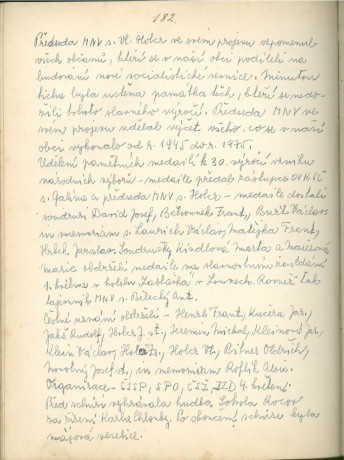 182.
Předseda MNV s. Vl. Holcr ve svém projevu vzpomenul
všech občanů, kteří se v naší obci podíleli na
budování nové socialistické vesnice. Minutou
ticha byla uctěna památka těch, kteří se nedo-
žili tohoto slavného výročí. Předseda MNV ve
svém projevu udělal výčet všeho, co se v naší
obci vykonalo od r. 1945 do r. 1975.
Udělení pamětních medailí k 30. výročí vzniku
národních výborů - medaile předal zástupce OV KSČ
s. Galina a předseda MNV s. Holcr - medaile dostali
soudruzi David Josef, Frant., Bureš Václav
in memoriam s. Václav, Matějka Frant,
Jaroslav. Soudružky Kindlová Marta a
Marie obdržely medaile na slavnostním zasedání
1. května v hotelu v Lounech. Rovněž
tajemník MNV s. Bělecký Ant.
Čestné uznání obdrželi - Frant, Kučera Jar.,
Rudolf, Holcr J. st., Michal, Jar,
Klein Václav, Holcr Vl., Bitner Oldřich,
Novotný Josef st., in memoriam Alois.
Organisace - ČSSP, SPO, ČSŽ, JZD 4. květen.
Před schůzí vyhrávala hudba Sokola Ročov
za řízení Karla. Po skončení schůze byla
májová veselice.